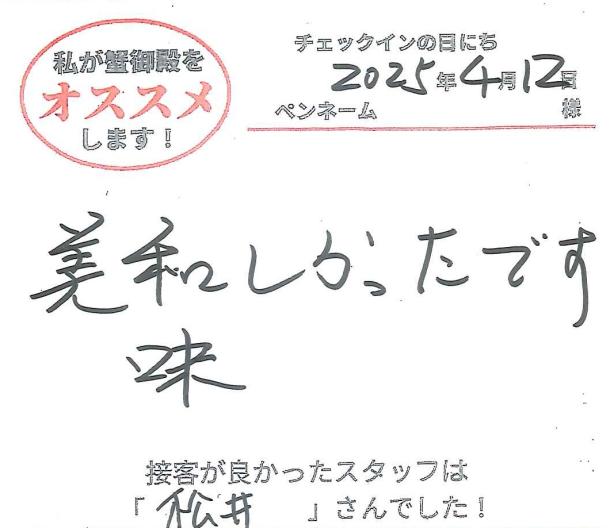 私が蟹御殿を
オススメ
します!
チェックインの日にち
2025年4月12日
ペンネーム 様
美和しかったです
味
接客が良かったスタッフは
「松井」さんでした!